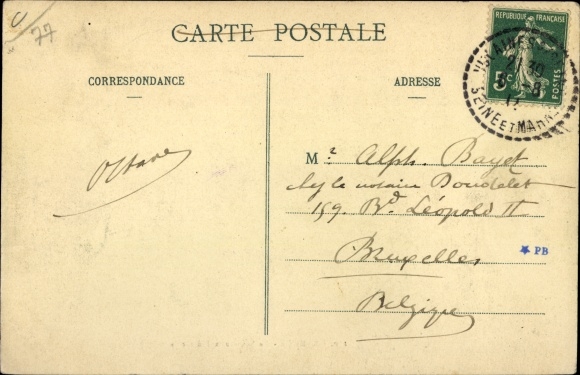 77
CARTE POSTALE
RÉPUBLIQUE FRANÇAISE
5 c
POSTES
SEINE ET MARNE
CORRESPONDANCE
ADRESSE
Octave
Mr Alph. Bayet
chez le notaire Boudelet
159. Bd Léopold II
Bruxelles
Belgique
★ PB